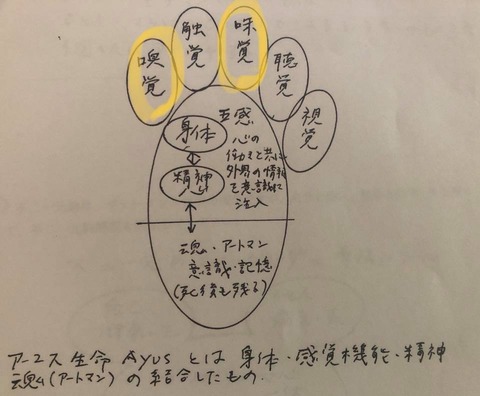 嗅覚
触覚
味覚
聴覚
視覚
五感
身体
精神
心の
働きと共に
外界の情報
を意識に
注入
魂・アートマン
意識・記憶
(死後も残る)
アーユス 生命 Ayus とは 身体・感覚機能・精神
魂(アートマン)の結合したもの.